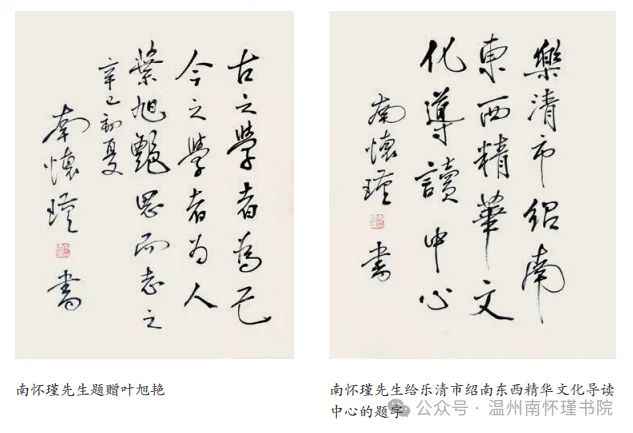 古之學者為己
今之學者為人
葉旭艷思而志之
辛巳初夏
南懷瑾 書
樂清市紹南
東西精華文
化導讀中心
南懷瑾 書
南怀瑾先生题赠叶旭艳
南怀瑾先生给乐清市绍南东西精华文化导读
中心的题字
公众号 · 温州南怀瑾书院